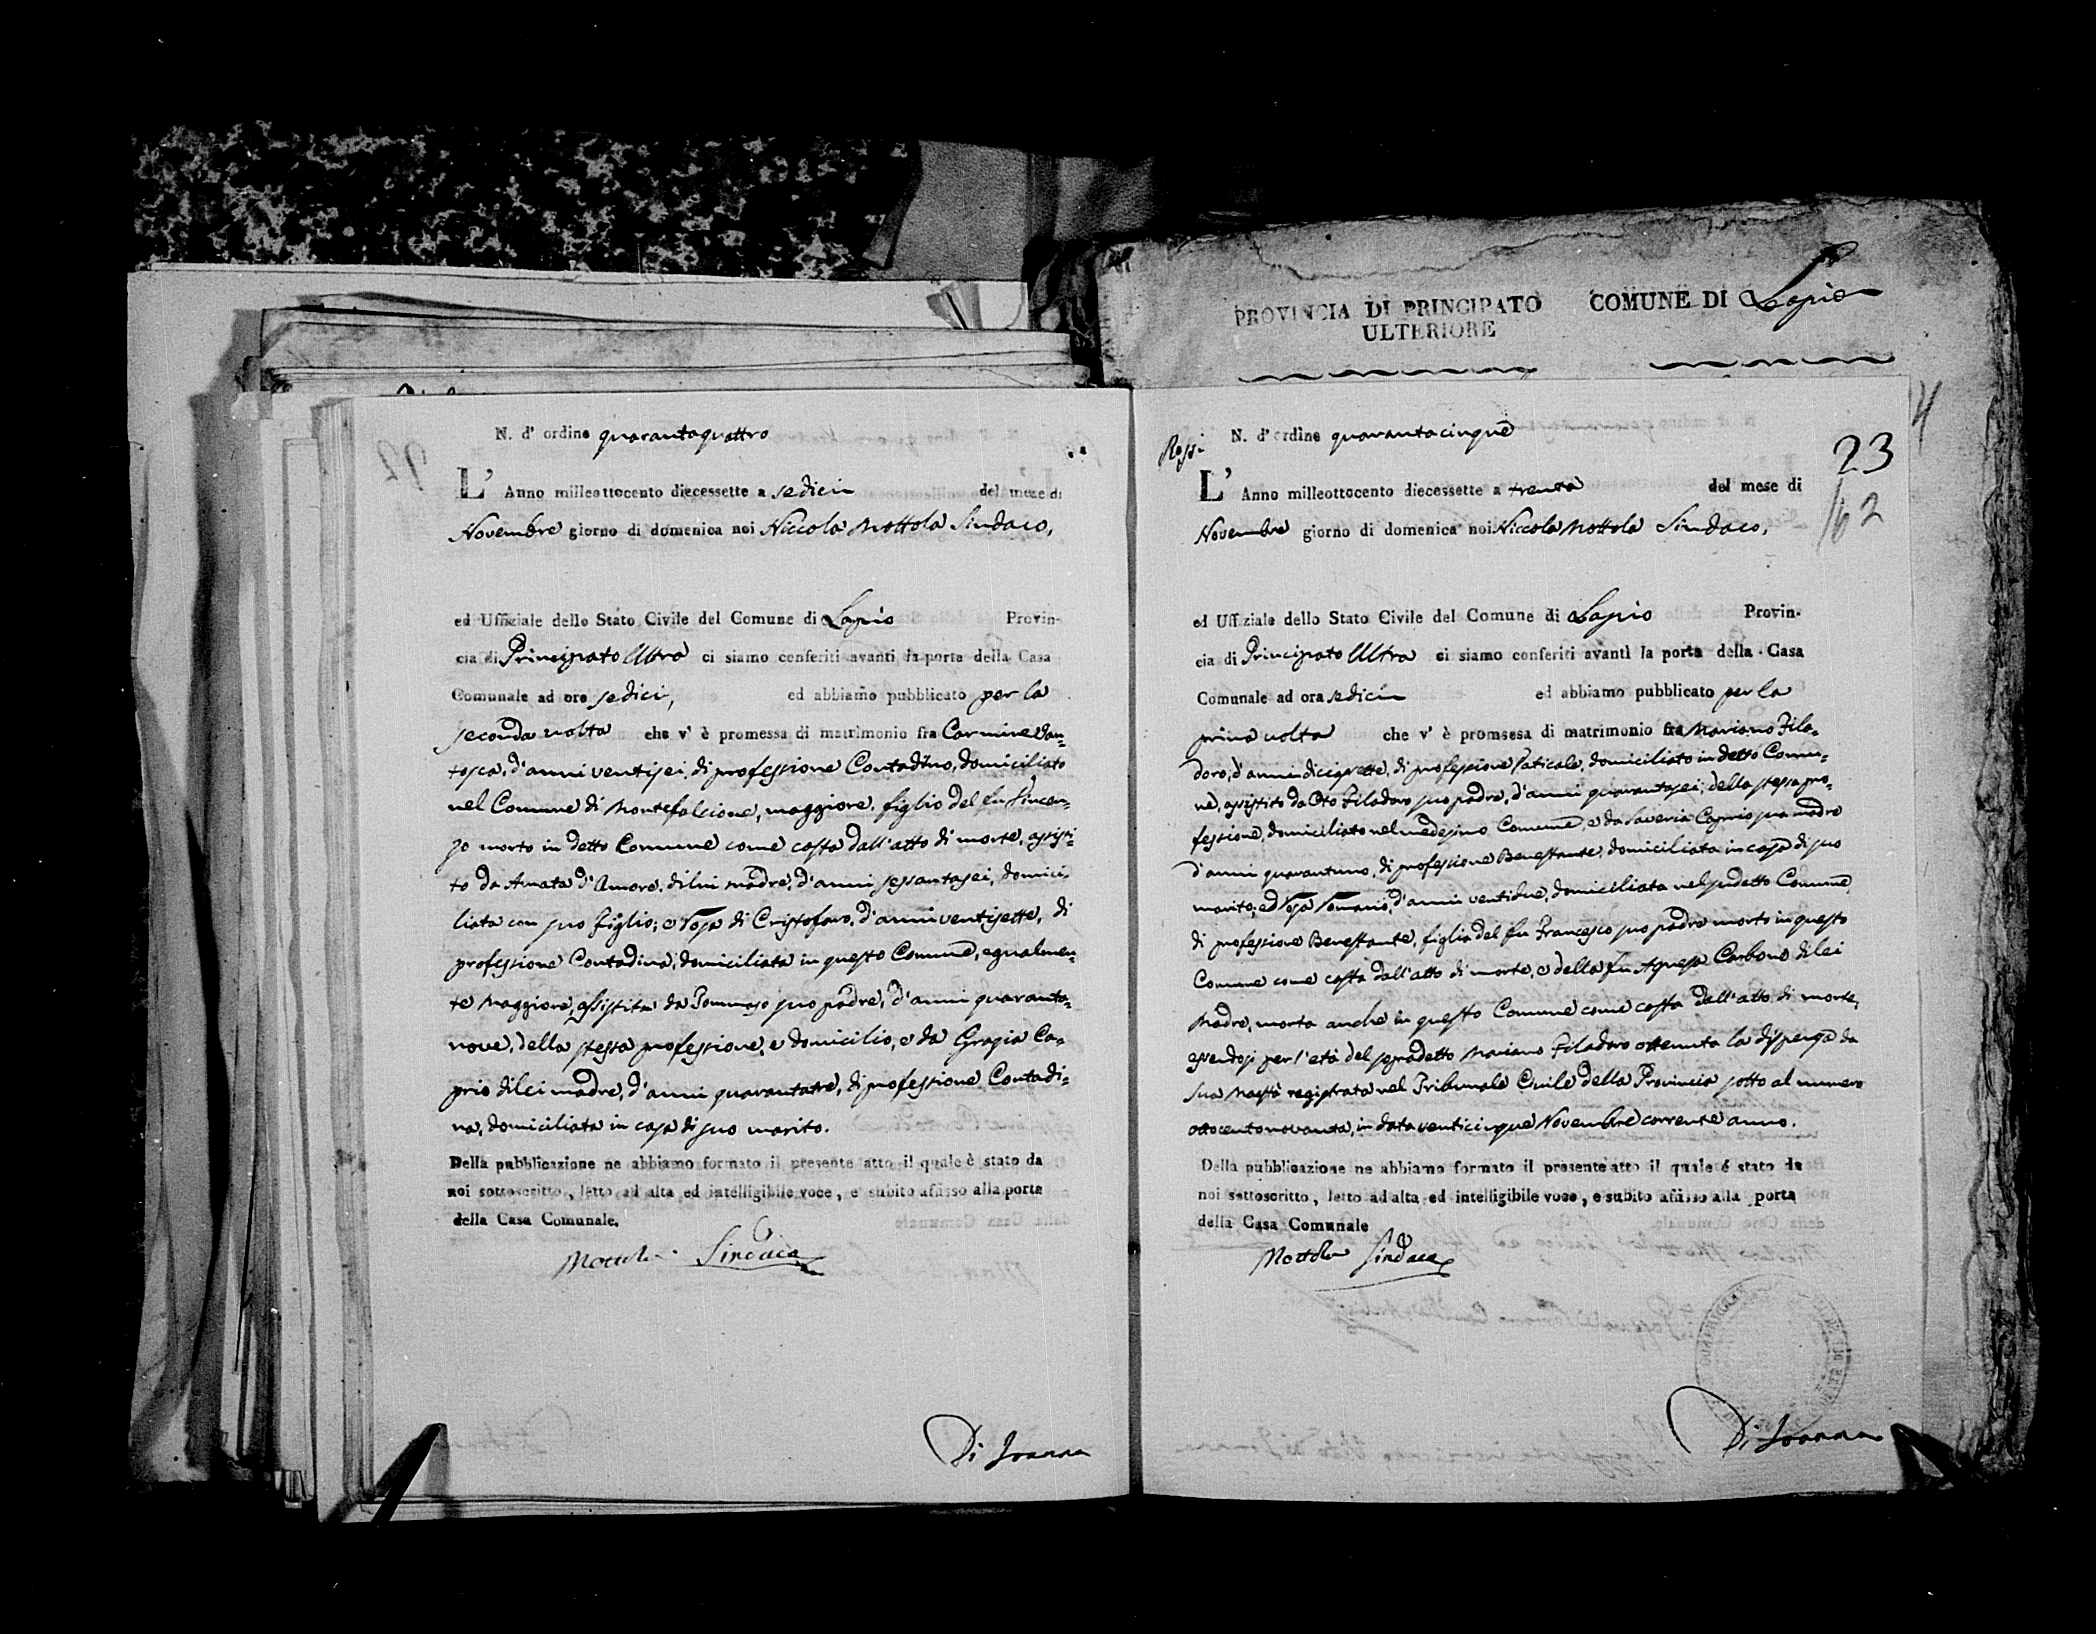 PROVINCIA DI PRINCIPATO
ULTERIORE
COMUNE DI Lapio
N. d' ordine quarantaquattro
L' Anno milleottocento diecessette a sedici del mese di
Novembre giorno di domenica noi Niccola Mottola Sindaco,
ed Uffiziale dello Stato Civile del Comune di Lapio Provin-
cia di Principato Ultra ci siamo conferiti avanti la porta della Casa
Comunale ad ore sedici, ed abbiamo pubblicato per la
seconda volta che v' è promessa di matrimonio fra Carmine San=
tosca, d'anni ventisei, di professione Contadino, domiciliato
nel Comune di Montefalcione, maggiore, figlio del fu Vincen=
zo morto in detto Comune come costa dall'atto di morte, assisti=
to da Amata d'Amore, di lui madre, d'anni sessantasei, domici,
liata con suo figlio; e Rosa di Cristofaro, d'anni ventisette, di
professione Contadina, domiciliata in questo Comune, egualmen=
te Maggiore, assistita da Tommaso suo padre, d'anni quaranta=
nove, della stessa professione, e domicilio, e da Grazia Ca=
prio di lei madre, d'anni quarantatre, di professione Contadi=
na, domiciliata in casa di suo marito.
Della pubblicazione ne abbiamo formato il presente atto il quale è stato da
noi sottoscritto, letto ad alta ed intelligibile voce, e subito affisso alla porta
della Casa Comunale.
Mottola Sindaco
Di Ioanna
Rossi
N. d' ordine quarantacinque
4
23
162
L' Anno milleottocento diecessette a trenta del mese di
Novembre giorno di domenica noi Niccola Mottola Sindaco,
ed Uffiziale dello Stato Civile del Comune di Lapio Provin-
cia di Principato Ultra ci siamo conferiti avanti la porta della Casa
Comunale ad ora sedici ed abbiamo pubblicato per la
prima volta che v' è promsesa di matrimonio fra Mariano Fila=
doro, d'anni diciassette, di professione faticale, domiciliato in detto Comu=
ne, assistito da Oto Filadoro suo padre, d'anni quarantasei, della stessa pro=
fessione, domiciliato nel medesimo Comune, e da Saveria Caprio sua madre
d'anni quarantuno, di professione Benestante, domiciliata in casa di suo
marito; ed Rosa Romano, d'anni ventidue, domiciliata nel sudetto Comune,
di professione Benestante, figlia del fu Francesco suo padre morto in questo
Comune come costa dall'atto di morte, e della fu Agnesa Carbone di lei
Madre, morta anche in questo Comune come costa dall'atto di morte,
essendosi per l'età del sopradetto Mariano Filadoro ottenuta la dispenza da
Sua Maestà registrata nel Tribunale Civile della Provincia sotto al numero
ottocentonovanta, in data venticinque Novembre corrente anno.
Della pubblicazione ne abbiamo formato il presente atto il quale é stato da
noi sottoscritto, letto ad alta ed intelligibile voce, e subito affisso alla porta
della Casa Comunale
Mottola Sindaco
Di Ioanna